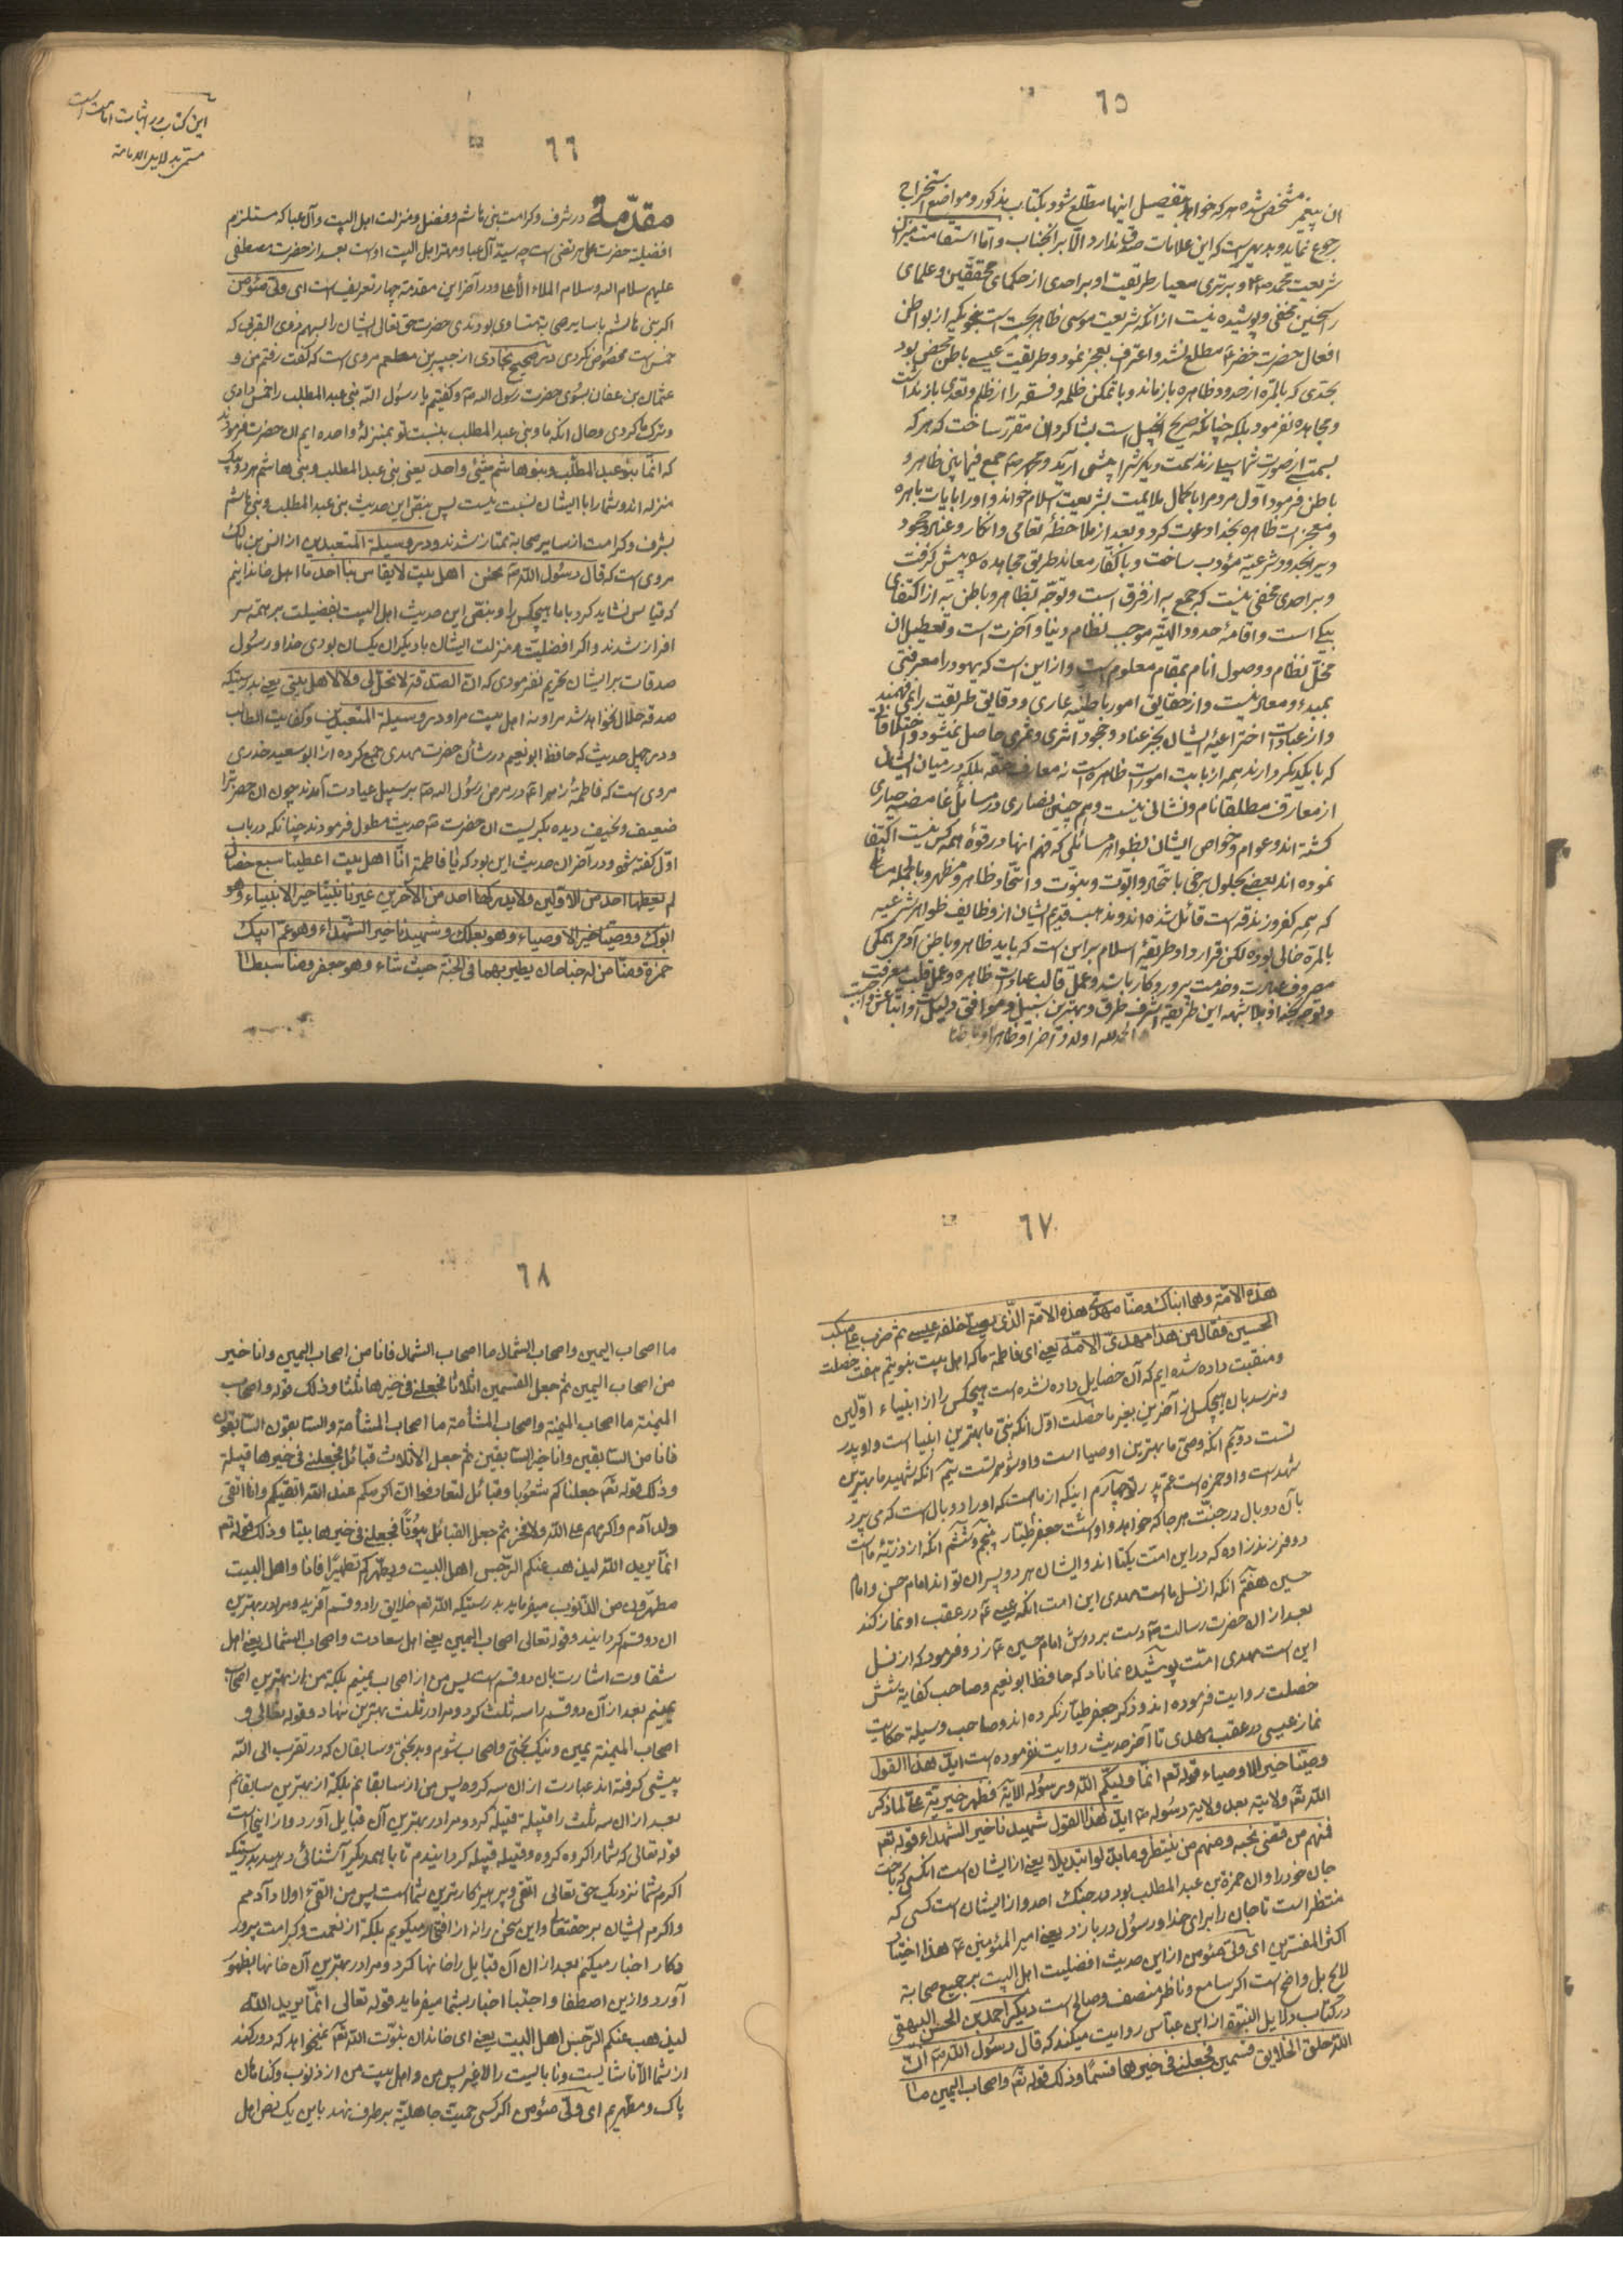 ٦٥
ان پیغمبر مشخص شده هر که خواهد بتفصیل اینها مطلع شود بکتاب مذکور و مواضع استخراج
رجوع نماید و بدیهیست که این علامات صدق ندارد الا بر انجناب و اما استقامت میزان
شریعت محمد و برتری معیار طریقت او بر احدی از حکمای محققین و علمای
راسخین مخفی و پوشیده نیست از انکه شریعت موسی ظاهر بحت است بنحویکه از بواطن
افعال حضرت خضر مطلع نشد و اعتراف بعجز نمود و طریقت عیسی باطن محض بود
بحدی که بالمره از حدود ظاهره باز ماند و با تمکن ظلمه و فسقه را از ظلم و تعدی باز نداشت
و مجاهده نفرمود بلکه چنانکه صریح انجیل است بشاکردان مقرر ساخت که هر که
باطن فرمود اول مردم را با کمال ملایمت بشریعت اسلام خواند و او را بایات باهره
و معجزات ظاهره بخدا دعوت کرد و بعد از ملاحظه تعامی و انکار و عناد و جحود
و بر احدی مخفی نیست که جمع به از فرق است و توجه بظاهر و باطن به از اکتفای
بیکی است و اقامه حدود الهیه موجب نظام دنیا و آخرت است و تعطیل ان
مخل نظام و وصول انام بمقام معلوم است و از این است که یهود را معرفتی
بمبدء و معاد نیست و از حقایق امور باطنیه عاری و دقایق طریقت را نمی فهمند
و از عبادات اختراعیه ایشان بجز عناد و جحود اثری و ثمری حاصل نمیشود و اختلافاتی
که با یکدیکر دارند همه از بابت امورات ظاهره است نه معارف حقه بلکه در میان ایشان
از معارف مطلقا نام و نشانی نیست و هم چنین نصاری در مسائل غامضه حیاری
کشته اند و عوام و خواص ایشان بظواهر مسائلی که فهم انها در قوه همه کس نیست اکتفا
نموده اند بعضی بحلول برخی باتحاد و ابوت و بنوت و اتحاد ظاهر و مظهر و بالجمله مسائلی
که همه کفر و زندقه است قائل شده اند و مذهب قدیم ایشان از وظایف ظواهر شرعیه
بالمره خالی بوده لکن قرار داد طریقه اسلام بر این است که باید ظاهر و باطن آدمی همکی
مصروف عبادت و خدمت پروردکار باشد و عمل قالب عبادات ظاهره و عمل قلب معرفت
و توجه بخدا و بلا شبهه این طریقه اشرف طرق و بهترین سبیل
الحمد لله اولا و آخرا و ظاهرا و باطنا
٦٦
این کتاب در اثبات امامت است
مقدّمة در شرف و کرامت بنی هاشم و فضل و منزلت اهل البیت و آل عبا که مستلزم
افضیلة حضرت علی مرتضی است چه سید آل عبا و مهتر اهل البیت اوست بعد از حضرت مصطفی
علیهم سلام الله و سلام الملاء الأعلی و در آخر این مقدمة چهار تعریف است ای ولی مؤمن
اکر بنی هاشم با سایر صحابة متساوی بودندی حضرت حق تعالی ایشان را بسهم ذوی القربی که
خمس است مخصوص نکردی در صحیح بخاری از جبیر بن مطعم مروی است که کفت رفتم من و
عثمان بن عفان بسوی حضرت رسول الله ص و کفتیم یا رسول الله بنی عبد المطلب را خمس دادی
و ترک ما کردی و حال انکه ما و بنی عبد المطلب بنسبت تو بمنزله واحده ایم ان حضرت فرمودند
که انّما بنو عبد المطلب و بنو هاشم شیئ واحد یعنی بنی عبد المطلب و بنی هاشم هر دو بیک
منزله اند و شما را با ایشان نسبت نیست پس بنقی این حدیث بنی عبد المطلب و بنی هاشم
بشرف و کرامت از سایر صحابة ممتاز شدند و در وسیلة المتعبدین از انس بن مالک
مروی است که قال رسول الله ص نحن اهل بیت لا یقاس بنا احد ما اهل خاندانیم
که قیاس نشاید کرد با ما هیچکس را و بنقی این حدیث اهل البیت بفضیلت بر همه سر
افراز شدند و اکر افضلیت و منزلت ایشان با دیکران یکسان بودی خدا و رسول
صدقات بر ایشان تحریم نفرمودی که انّ الصدقة لا تحل لی و لا لاهل بیتی یعنی بدرستیکه
صدقه حلال نخواهد شد مرا و نه اهل بیت مرا و در وسیلة المتعبدین و کفایت الطالب
و در چهل حدیث که حافظ ابو نعیم در شان حضرت مهدی جمع کرده از ابو سعید خدری
مروی است که فاطمه زهرا ع در مرض رسول الله ص بر سبیل عیادت آمدند چون ان حضرت را
ضعیف و نحیف دیده بکریست ان حضرت ص حدیث مطول فرمودند چنانکه در باب
اول کفته شود و در آخر ان حدیث این بود که یا فاطمة انّا اهل بیت اعطینا سبع خصال
لم یعطها احد من الاولین و لا یدرکها احد من الآخرین غیرنا نبیّنا خیر الانبیاء و هو
ابوک و وصیّنا خیر الاوصیاء و هو بعلک و شهیدنا خیر الشهداء و هو عم ابیک
حمزة و منّا من له جناحان یطیر بهما فی الجنة حیث شاء و هو جعفر و منّا سبطا
٦٧
هذه الامّة و هما ابناک و منّا مهدی هذه الامّة الّذی یصلّی خلفه عیسی ثم ضرب علی منکب
الحسین فقال من هذا مهدی الامّة یعنی ای فاطمه ما که اهل بیت نبوتیم هفت خصلت
و منقبت داده شده ایم که آن خصایل داده نشده است هیچکس را از انبیاء اولین
و نرسد بان هیچکس از آخرین بغیر ما خصلت اول انکه نبی ما بهترین انبیا است و او پدر
تست دویم انکه وصی ما بهترین اوصیا است و او شوهر تست سیم انکه شهید ما بهترین
شهد است و او حمزه است عم پدر تو چهارم اینکه از ما است که او را دو بال است که می پرد
بآن دو بال در جنت هر جا که خواهد و او است جعفر طیّار پنجم و ششم انکه از ذریه ما است
دو فرزند زاده که در این امت یکتا اند و ایشان هر دو پسران تو اند امام حسن و امام
حسین هفتم انکه از نسل ما است مهدی این امت انکه عیسی ع در عقب او نماز کند
بعد از ان حضرت رسالت ص دست بر دوش امام حسین ع زد و فرمود که از نسل
این است مهدی امت پوشیده نماناد که حافظ ابو نعیم و صاحب کفایة شش
خصلت روایت فرموده اند و ذکر جعفر طیار نکرده اند و صاحب وسیلة حکایت
نماز عیسی در عقب مهدی تا آخر حدیث روایت نفرموده است ایّد هذا القول
وصیّنا خیر الاوصیاء قوله تعم انّما ولیّکم الله و رسوله الآیة فظهر خیریّة علی لما ذکر
الله تعم ولایته بعد ولایة رسوله ص ایّد لهذا القول شهیدنا خیر الشهداء قوله تعم
فمنهم من قضی نحبه و منهم من ینتظر و ما بدّلوا تبدیلا یعنی از ایشان است انکسی که باخت
جان خود را و ان حمزة بن عبد المطلب بود در جنک احد و از ایشان است کسی که
منتظر است تا جان را برای خدا و رسول در بازد یعنی امیر المؤمنین ع هذا اختیار
اکثر المفسّرین ای ولی مئومن از این حدیث افضلیت اهل البیت بر جمیع صحابة
لایح بل واضح است اکر سامع و ناظر منصف و صالح است دیکر احمد بن الحسن البیهقی
در کتاب دلایل النبوّة از ابن عباس روایت میکند که قال رسول الله ص انّ
الله خلق الخلایق قسمین فجعلنی فی خیرها قسمًا و ذلک قوله تعم و اصحاب الیمین ما
٦٨
ما اصحاب الیمین و اصحاب الشمال ما اصحاب الشمال فانا من اصحاب الیمین و انا خیر
من اصحاب الیمین ثم جعل القسمین اثلاثا فجعلنی فی خیرها ثلثا و ذلک قوله و اصحاب
المیمنة ما اصحاب المیمنة و اصحاب المشأمة ما اصحاب المشأمة و السابقون السابقون
فانا من السابقین و انا خیر السابقین ثم جعل الاثلاث قبائل فجعلنی فی خیرها قبیلة
و ذلک قوله تعم جعلناکم شعوبا و قبائل لتعارفوا انّ اکرمکم عند الله اتقیکم و انا اتقی
ولد آدم و اکرمهم علی الله و لا فخر ثم جعل القبائل بیوتًا فجعلنی فی خیرها بیتا و ذلک قوله تم
انّما یرید الله لیذهب عنکم الرّجس اهل البیت و یطهّرکم تطهیرًا فانا و اهل البیت
مطهّرون من الذنوب میفرماید بدرستیکه الله تعم خلایق را دو قسم آفرید و مرا در بهترین
ان دو قسم کردانید و قوله تعالی اصحاب الیمین یعنی اهل سعادت و اصحاب الشمال یعنی اهل
شقاوت اشارت بان دو قسم است پس من از اصحاب یمینم بلکه من از بهترین اصحاب
یمینم بعد از آن دو قسم را سه ثلث کرد و مرا در ثلث بهترین نهاد و قوله تعالی و
اصحاب المیمنة یمین و نیک بختی و اصحاب شوم و بدبختی و سابقان که در تقرب الی الله
پیشی کرفته اند عبارت از ان سه کروه پس من از سابقانم بلکه از بهترین سابقانم
بعد از ان سه ثلث را قبیلة قبیلة کرد و مرا در بهترین آن قبایل آورد و از اینجا است
قوله تعالی که شما را کروه کروه و قبیله قبیله کردانیدم تا با همدیکر آشنائی دهید بدرستیکه
اکرم شما نزدیک حق تعالی اتقی و پرهیزکارترین شما است پس من اتقی اولاد آدمم
و اکرم ایشان بر حقتعالی و این سخن را نه از افتخار میکویم بلکه از نعمت و کرامت پرورد
کار اخبار میکنم بعد از ان آن قبایل را خانها کرد و مرا در بهترین آن خانها بظهور
آورد و از این اصطفا و اجتبا اخبار بشما میفرماید قوله تعالی انّما یرید الله
لیذهب عنکم الرّجس اهل البیت یعنی ای خاندان نبوّت الله تعم نمیخواهد که دور کند
از شما الا ناشایست و نابایست را لاغیر پس من و اهل بیت من از ذنوب و کناهان
پاک و مطهریم ای ولی مئومن اکر کسی حمیت جاهلیه بر طرف نهد باین یک نص اهل